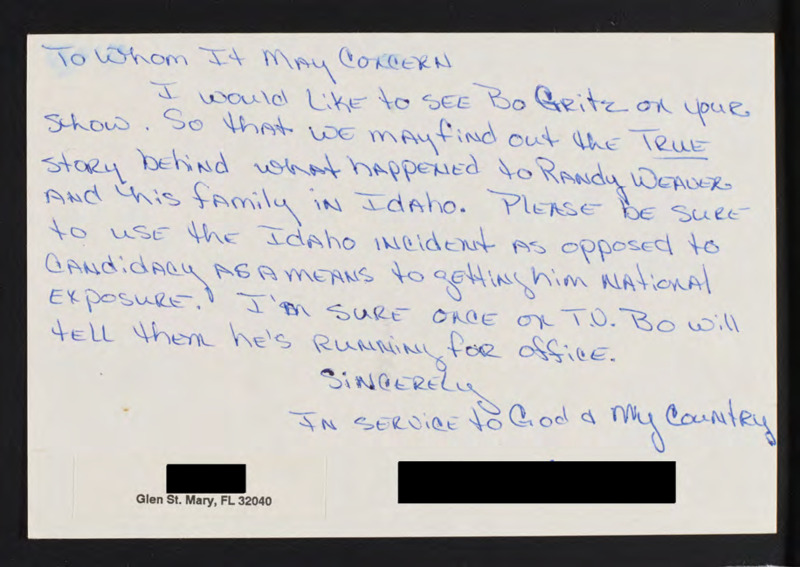 To Whom It May Concern
I would like to see Bo Gritz on your
show. So that we may find out the True
story behind what happened to Randy Weaver
and his family in Idaho. Please be sure
to use the Idaho incident as opposed to
candidacy as a means to getting him national
exposure. I'm sure once on T.V. Bo will
tell them he's running for office.
Sincerely
In service to God & My Country
Glen St. Mary, FL 32040